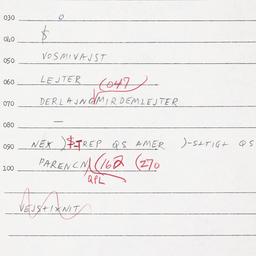 030 0
040 $
050 VOSMIVAJST
060 LEJTER (047)
070 DERLAJNG MIRDEMLEJTER
080 —
090 NEX ) $TREP QS AMER )-S+TIG+ QS
100 PARENCN (162 (270
QPL
VEJS+IXNIT